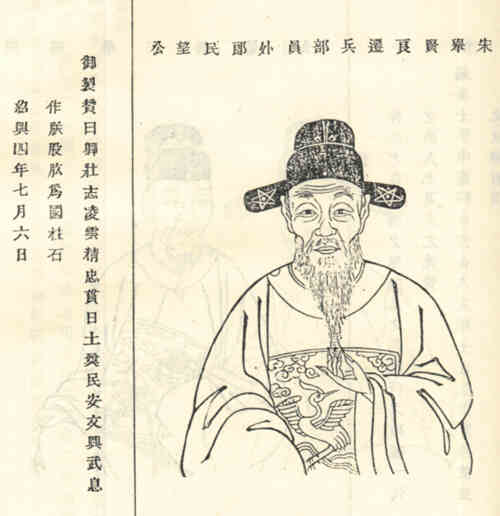 宋舉賢良遷兵部員外郎民望公
御製贊曰卿壯志凌雲精忠貫日土奠民安文興武息
作朕股肱爲國柱石
紹興四年七月六日